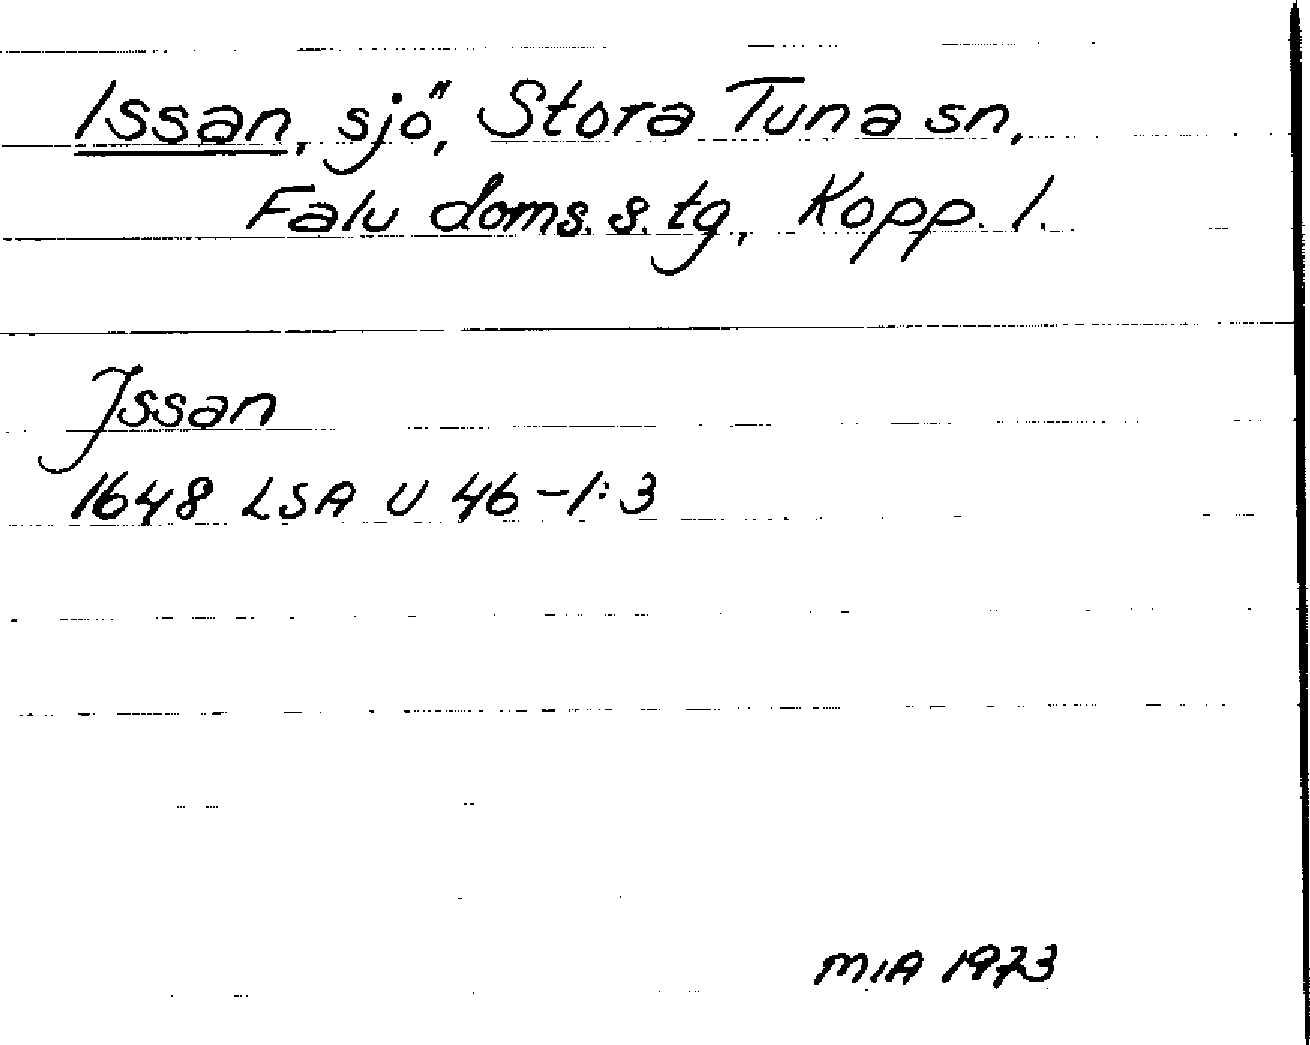 Issan, sjö, Stora Tuna sn,
Falu doms. s. tg, Kopp. l.
Jssan
1648 LSA U 46-1:3
MIA 1973